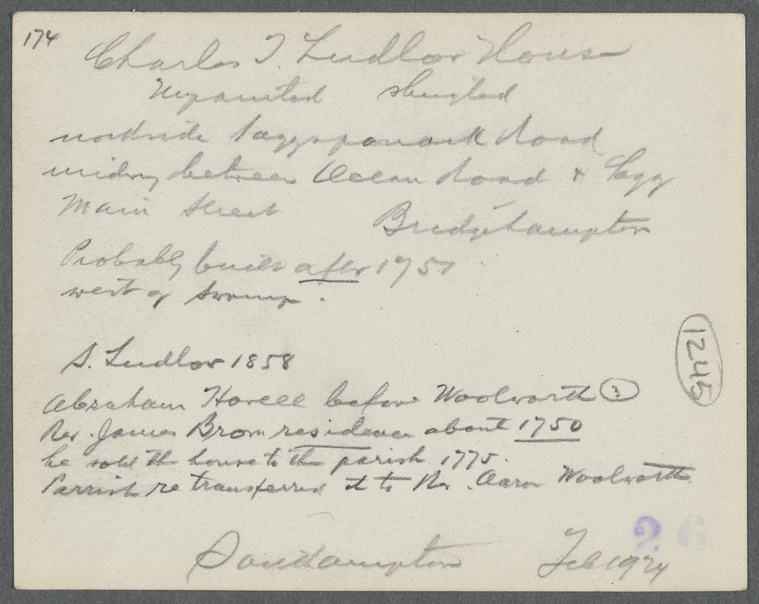 174
Charles T. Ludlow House
Unpainted shingled
northside Sagaponack Road
midway between Ocean Road & Sagg
Main Street Bridgehampton
Probably built after 1750
west of swamp.
S. Ludlow 1858
1245
Abraham Howell before Woolworth ?
Rev. James Brown residence about 1750
he sold the house to the parish 1775.
Parrish re transferred it to Rev. Aaron Woolworth
26
Southampton Feb 1924